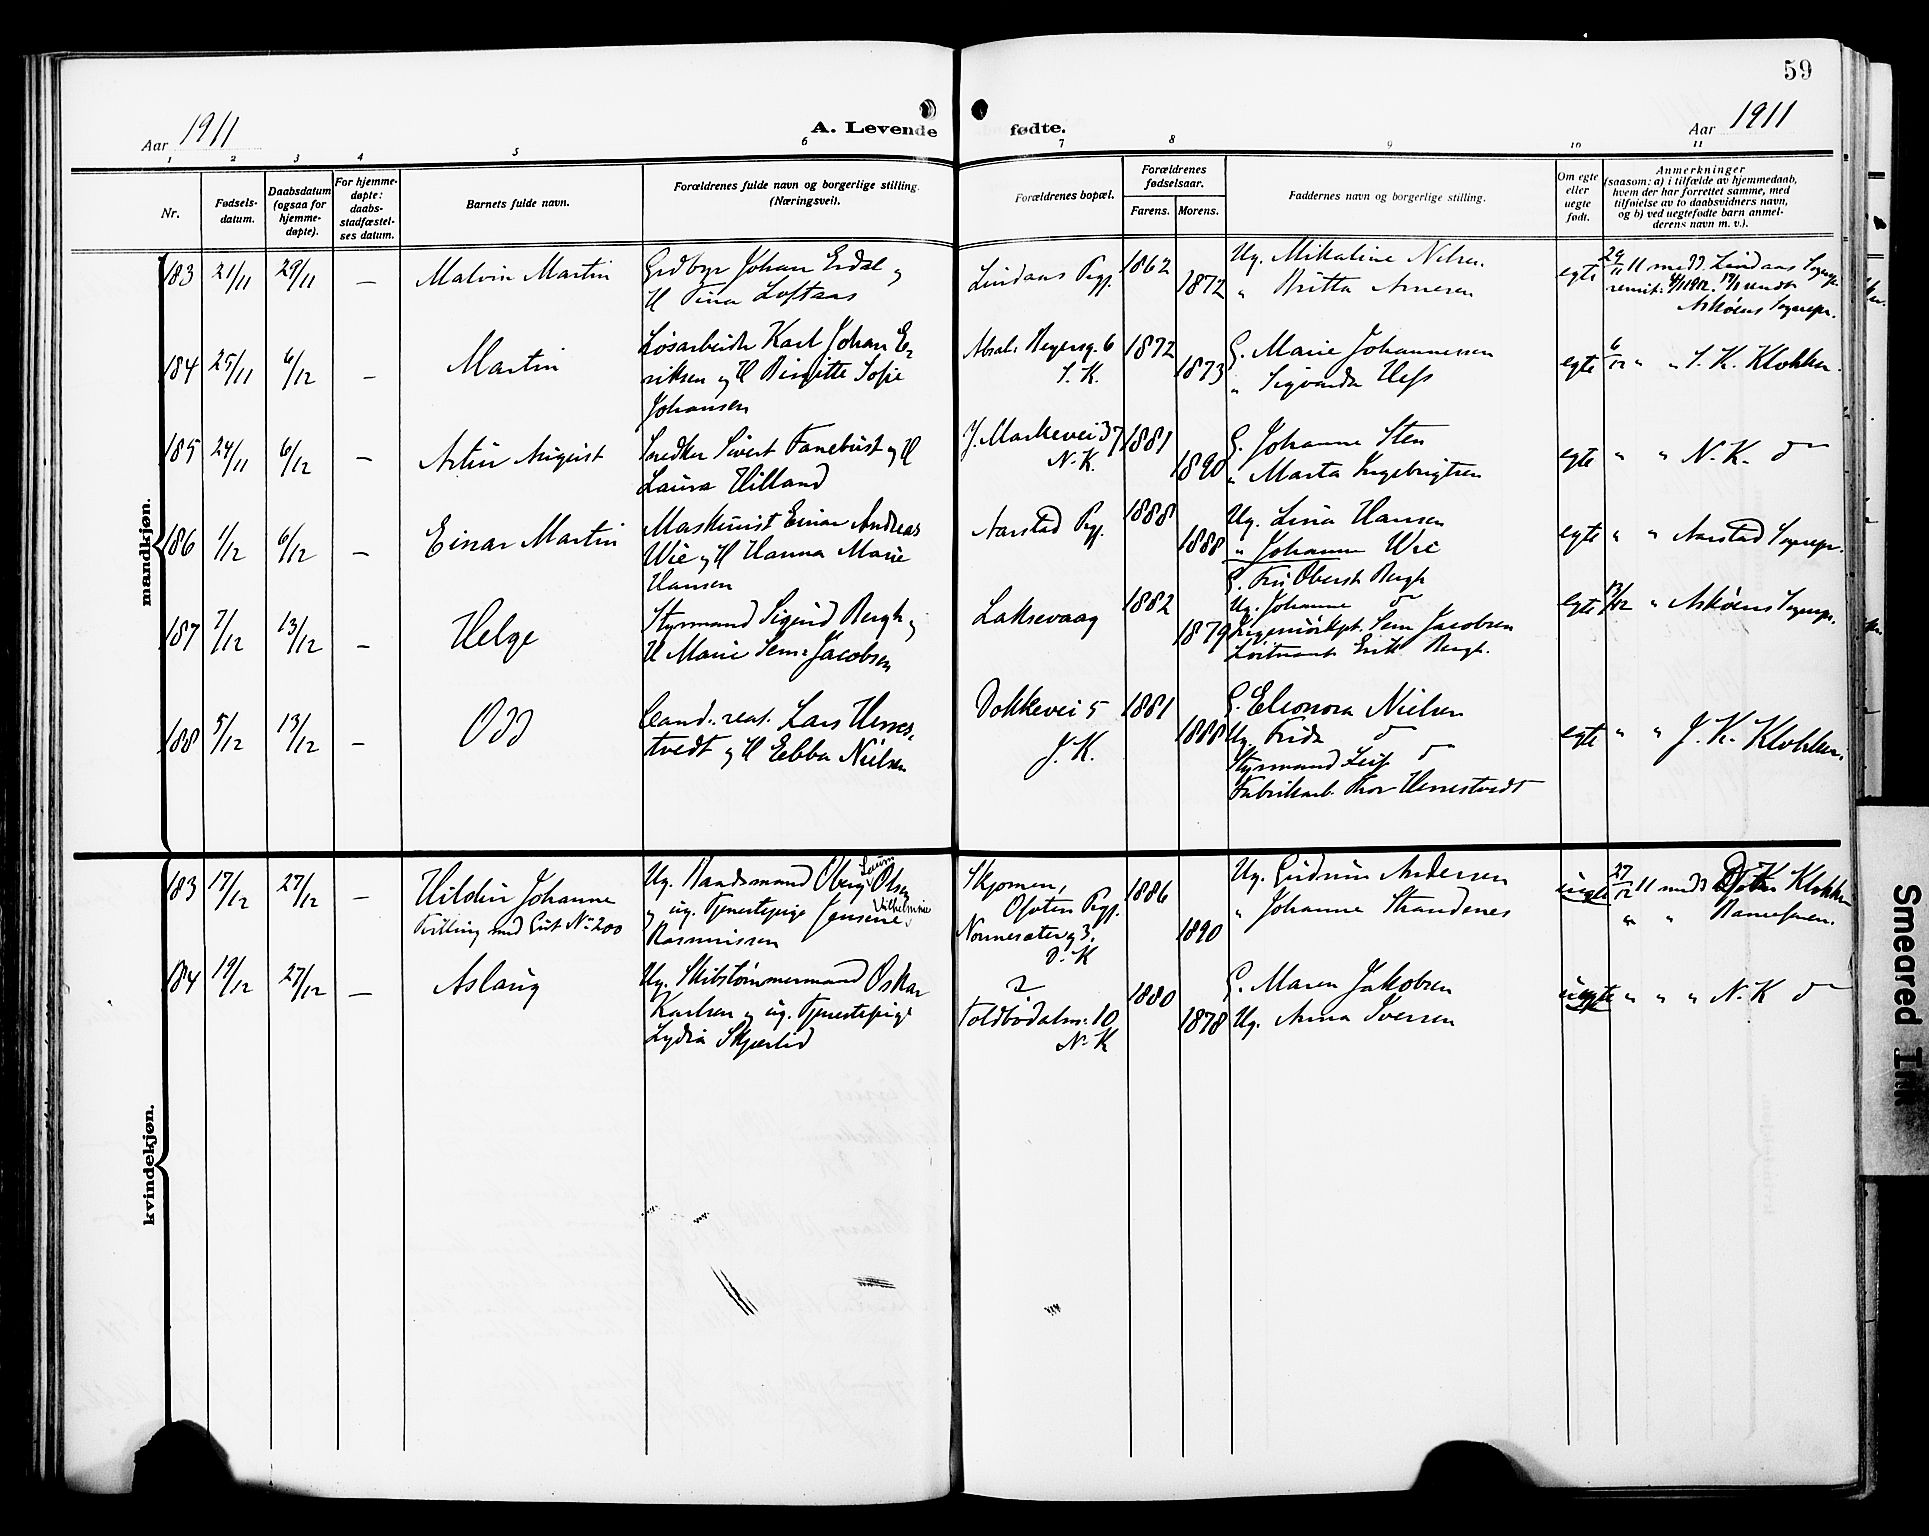 59
Aar 1911
A. Levende fødte.
Aar 1911
1 2 3 4 5 6 7 8 9 10 11
Nr.
Fødsels-
datum.
Daabsdatum
(ogsaa for
hjemme-
døpte).
For hjemme-
døpte:
daabs-
stadfæstel-
ses datum.
Barnets fulde navn.
Forældrenes fulde navn og borgerlige stilling.
(Næringsvei).
Forældrenes bopæl.
Forældrenes
fødselsaar.
Farens. Morens.
Faddernes navn og borgerlige stilling.
Om egte
eller
uegte
født.
Anmerkninger
(saasom: a) i tilfælde av hjemmedaab,
hvem der har forrettet samme, med
tilføielse av to daabsvidners navn,
og b) ved uegtefødte barn anmel-
derens navn m. v.).
mandkjøn.
183 21/11 29/11 — Malvin Martin
Grdbgr Johan Erdal og
H Tina Loftaas
Lindaas Pgj.
1862 1872
Ug. Mikaline Nilsen
" Britta Arnesen
egte
29/11 11 medd. Lindaas Sognepr.
Askøens Sognepr.
184 25/11 6/12 — Martin
Løsarbeider Karl Johan E-
riksen og H Birgitte Sofie
Johansen
Absal. Beyersg. 6
S. K.
1872 1873
G. Marie Johannessen
" Sigvarda Hess
egte
6/12 " " S. K. Klokker.
185 24/11 6/12 — Artur August
Snedker Sivert Fanebust og H
Laura Hilland
J. Markevei 37
N. K.
1881 1890
G. Johanne Sten
" Marta Ingebrigtsen
egte " " N. K. do
186 1/12 6/12 — Einar Martin
Maskinist Einar Andreas
Wie og H Hanna Marie
Hansen
Aarstad Pgj.
1888 1888
Ug. Lina Hansen
" Johanne Wie
egte " " Aarstad Sognepr.
187 7/12 13/12 — Helge
Styrmand Sigurd Bergh og
H Marie Sem-Jacobsen
Laksevaag
1882 1879
G. Fru Oberst Bergh
Ug. Johanne do
Ingeniørkpt. Sem Jacobsen
Løitnant Erik Bergh.
egte 13/12 " Askøens Sognepr.
188 5/12 13/12 — Odd
Cand. real. Lars Herres-
tvedt og H Ebba Nielsen
Dokkevei 5
J. K.
1881 1888
G. Eleonora Nielsen
Ug. Frida do
Styrmand Leif do
Fabrikarb. Thor Herrestvedt
egte " " J. K. Klokker.
kvindekjøn.
183 17/12 27/12 — Hildur Johanne
Tvilling med Gut No 200
Ug. Baadsmand Oberg Laurits Olsen
og ug. Tjenestepige Jensine Vilhelmine
Rasmussen
Skjomen,
Ofoten Pgj.
Nonnesæterg 3.
D. K
1886 1890
Ug. Gudrun Andersen
" Johanne Strandenes
uegte
27/12 11 medd D. K. Klokker
" "
184 19/12 27/12 — Aslaug
Ug. Skibstømmermand Oskar
Karlsen og ug. Tjenestepige
Lydia Skjærlid
?
Toldbodalm. 10
N. K
1880 1878
G. Maren Jakobsen
Ug. Anna Iversen
uegte " " " N. K do
Smeared Ink